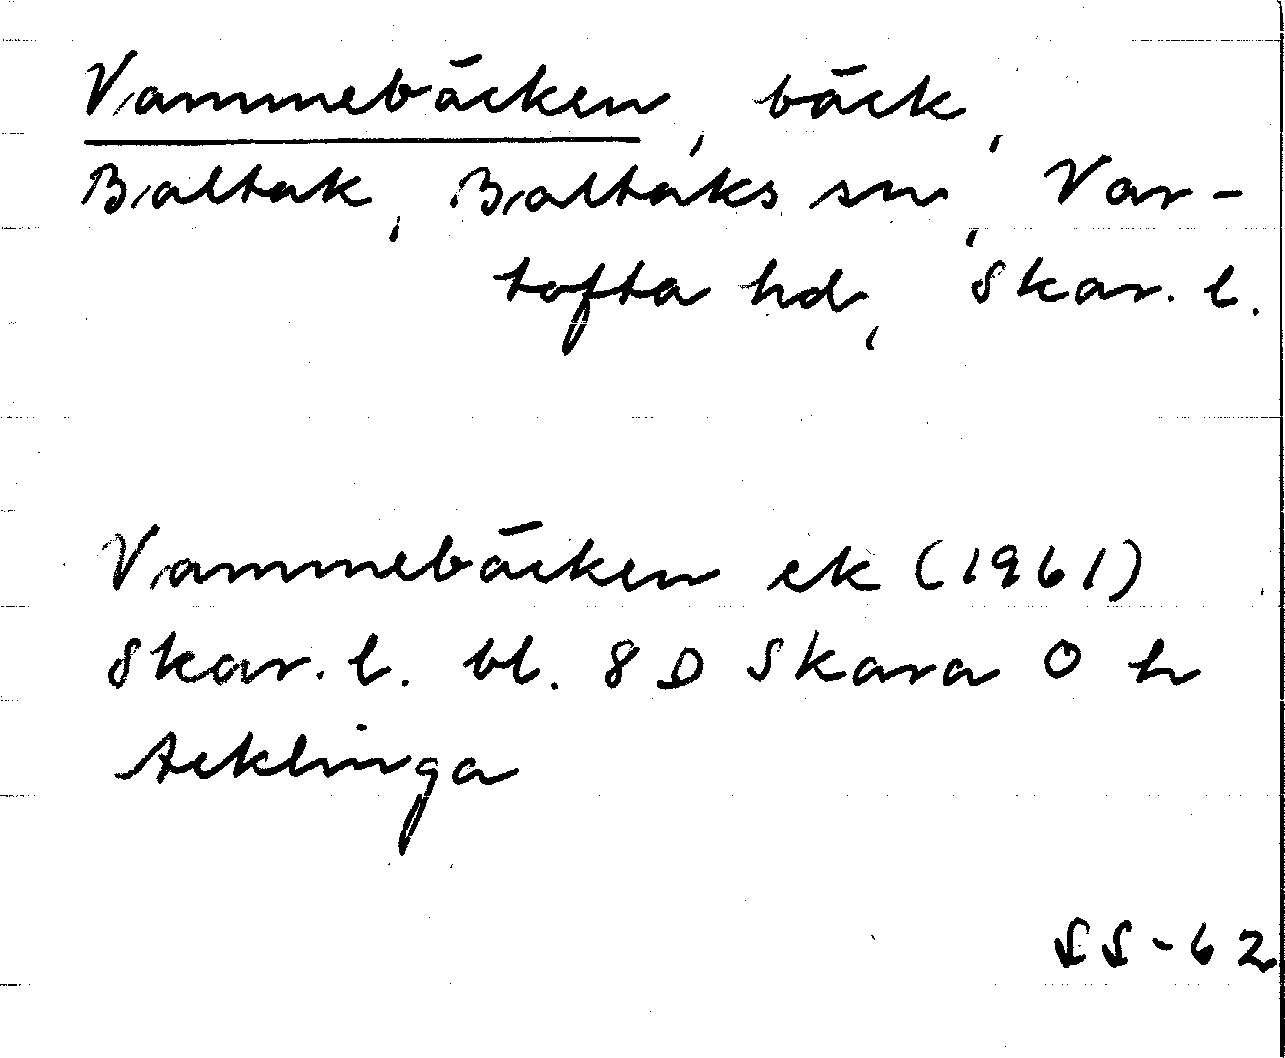 Vammebäcken, bäck,
Baltak, Baltaks sn, Var-
tofta hd, Skar. l.
Vammebäcken ek (1961)
Skar. l. bl. 8 D Skara O h
Acklinga
SS-62